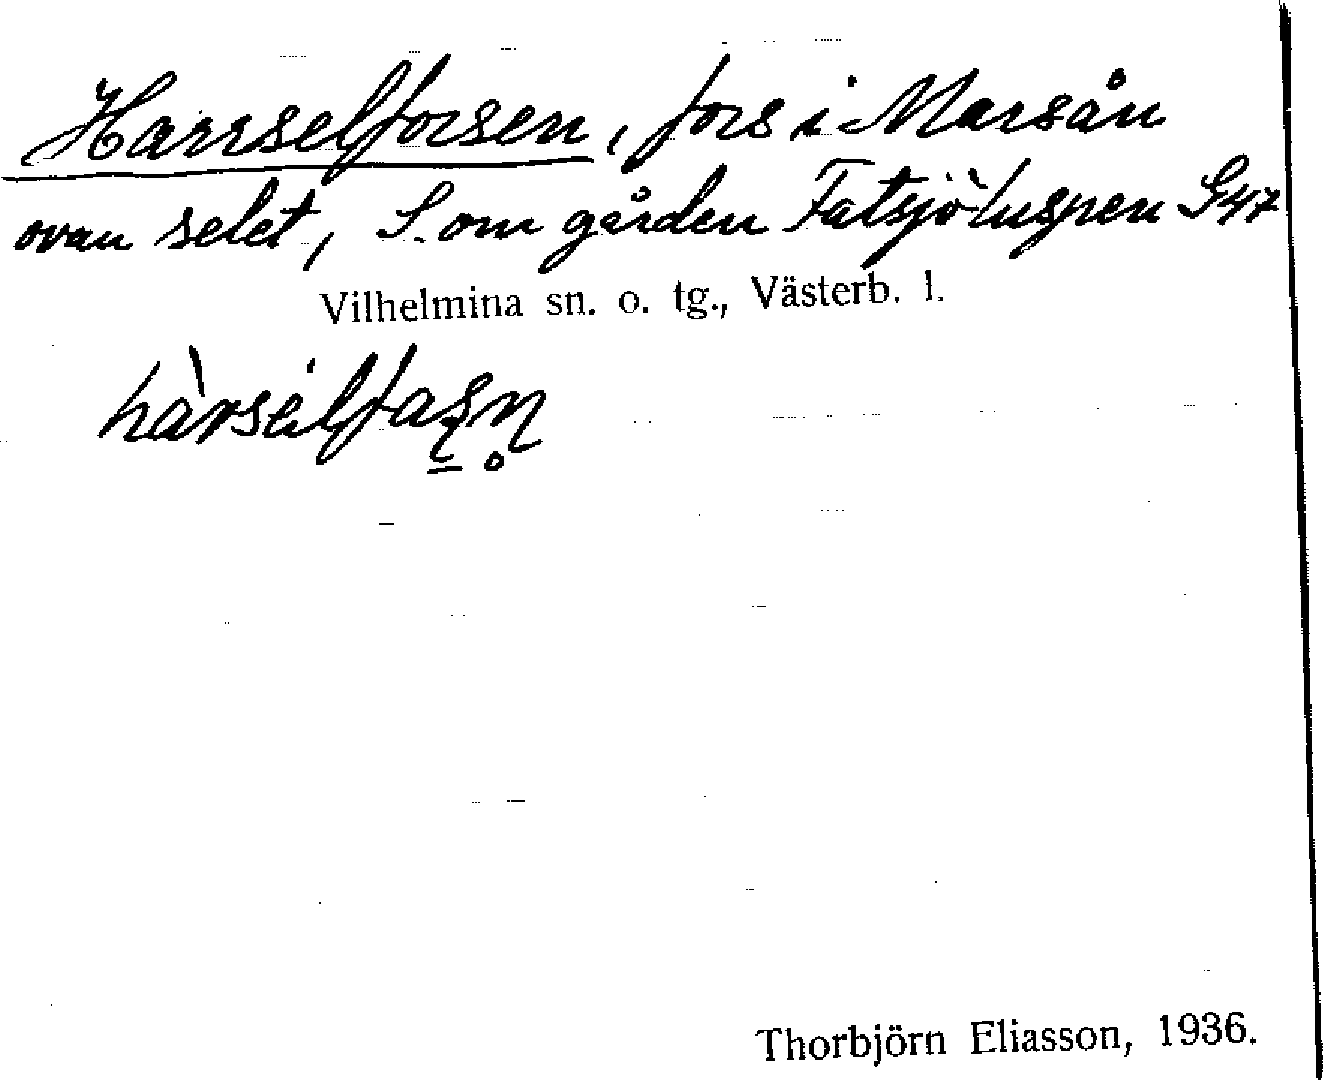 Harrselforsen, fors i Marsån
ovan selet, S. om gården Fatsjöluspen G47
Vilhelmina sn. o. tg., Västerb. l.
hàrsélfaʂn̥
Thorbjörn Eliasson, 1936.